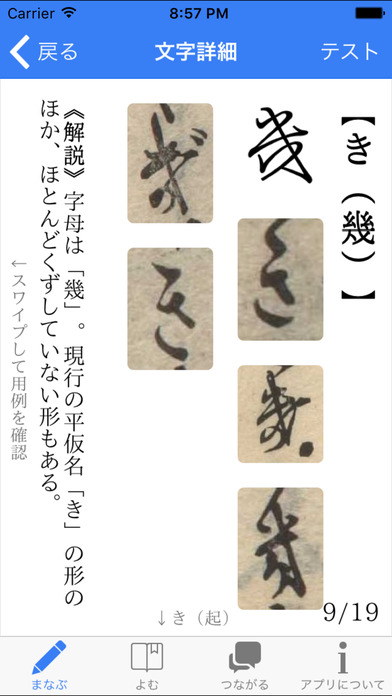 Carrier 8:57 PM
戻る 文字詳細 テスト
【き（幾）】
《解説》字母は「幾」。現行の平仮名「き」の形の
ほか、ほとんどくずしていない形もある。
←スワイプして用例を確認
↓き（起）
9/19
まなぶ よむ つながる アプリについて